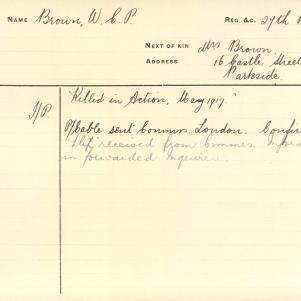 NAME Brown, W. C. P.
REG. &C. 27th
NEXT OF KIN Mrs Brown.
ADDRESS 16 Castle Street
Parkside.
"Killed in Action, May 1917."
I/P
P/Cable sent Commrs. London. Confir
received from Commrs.
in forwarded Inquirer.